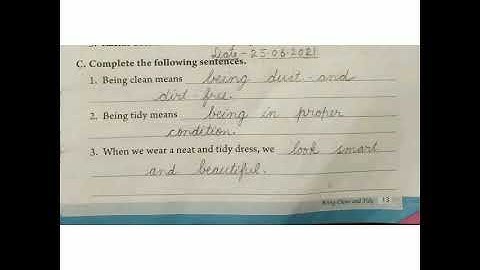 Date - 25-06-2021
C. Complete the following sentences.
1. Being clean means being dust - and
dirt - free.
2. Being tidy means being in proper
condition.
3. When we wear a neat and tidy dress, we look smart
and beautiful.
Being Clean and Tidy 13